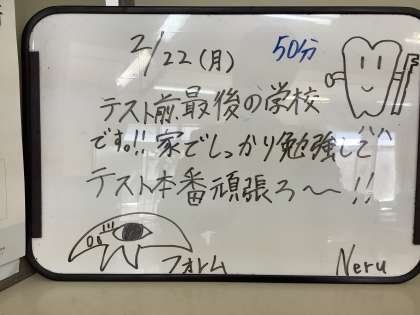 2/22(月) 50分
テスト前、最後の学校
です。!! 家でしっかり勉強して
テスト本番頑張ろ〜!!
フォトム Neru